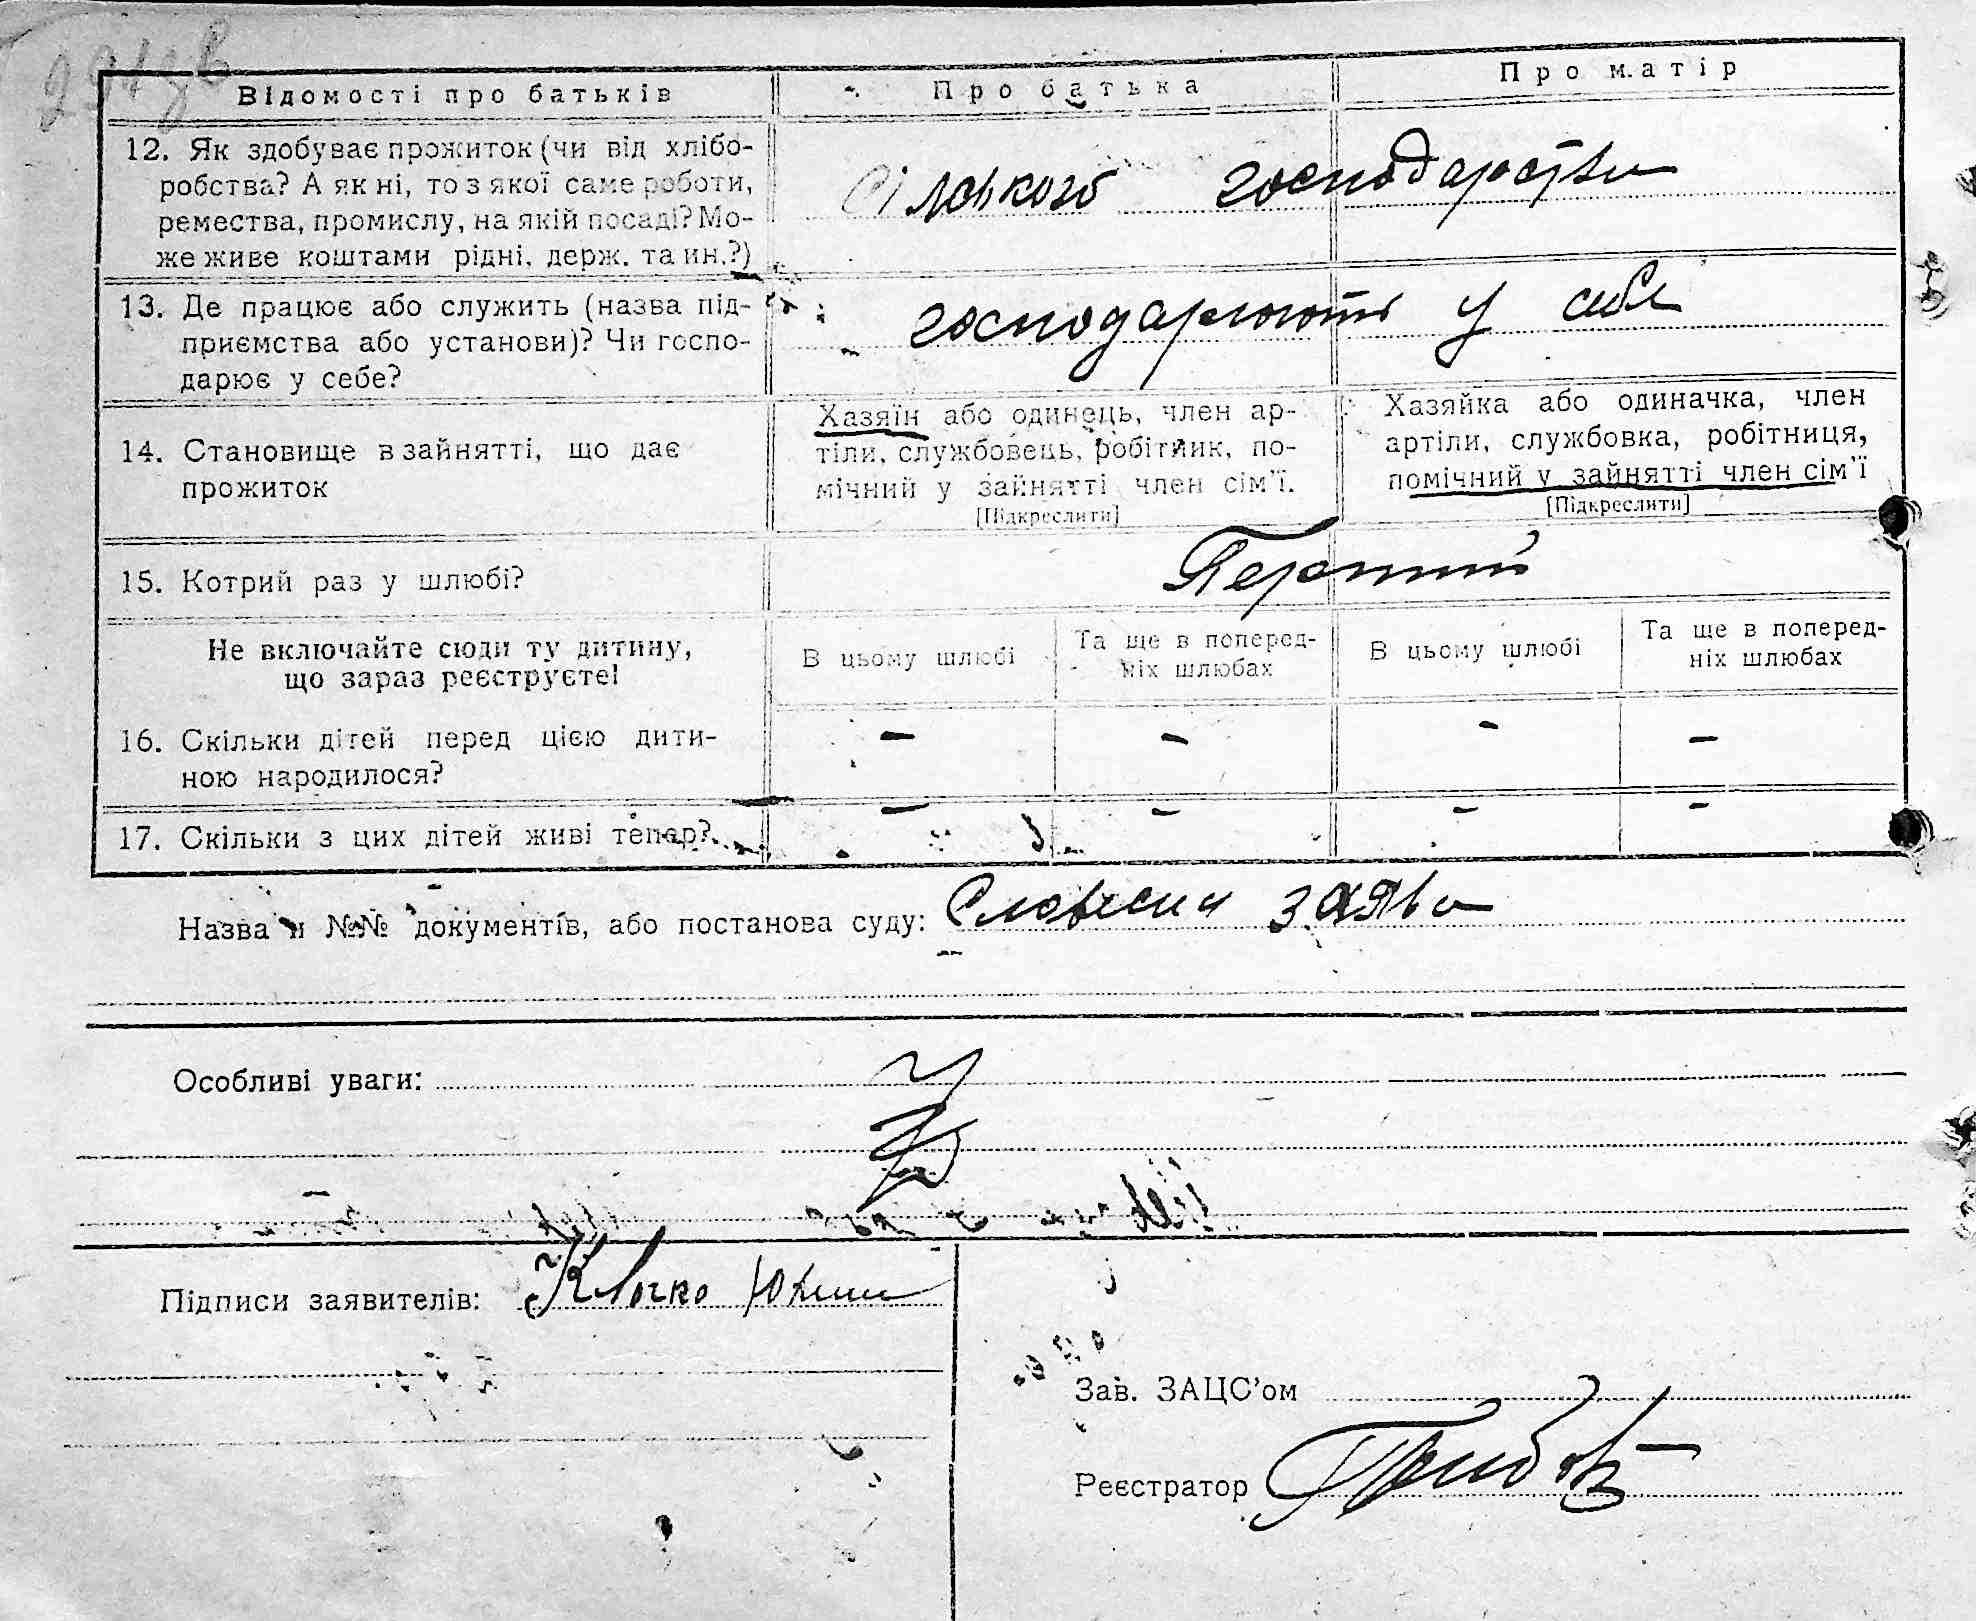 Відомості про батьків Про батька Про матір
12. Як здобуває прожиток (чи від хлібо-
робства? А як ні, то з якої саме роботи,
ремества, промислу, на якій посаді? Мо-
же живе коштами рідні, держ. та ин.?)
Сільського господарства
13. Де працює або служить (назва під-
приємства або установи)? Чи госпо-
дарює у себе?
господарюють у себе
14. Становище в зайнятті, що дає
прожиток
Хазяїн або одинець, член ар-
тіли, службовець, робітник, по-
мічний у зайнятті член сім'ї.
[Підкреслити]
Хазяйка або одиначка, член
артіли, службовка, робітниця,
помічний у зайнятті член сім'ї
[Підкреслити]
15. Котрий раз у шлюбі?
Перший
Не включайте сюди ту дитину,
що зараз реєструєте!
В цьому шлюбі
Та ще в поперед-
ніх шлюбах
В цьому шлюбі
Та ще в поперед-
ніх шлюбах
16. Скільки дітей перед цією дити-
ною народилося?
– – – –
17. Скільки з цих дітей живі тепер?
– – – –
Назва й №№ документів, або постанова суду: Словесна заява
Особливі уваги:
Підписи заявителів: Клочко
Зав. ЗАЦС'ом
Реєстратор